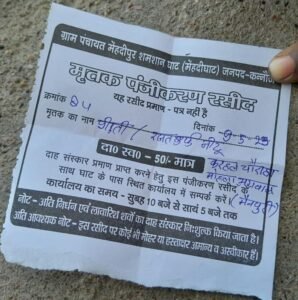 ग्राम पंचायत मेंहदीपुर शमशान घाट (मेंहदीघाट) जनपद-कन्नौज
मृतक पंजीकरण रसीद
यह रसीद प्रमाण - पत्र नहीं है
क्रमांक 84 दिनांक
मृतक का नाम प्रीती
दा० स्व० - 50/- मात्र
दाह संस्कार प्रमाण प्राप्त करने हेतु इस पंजीकरण रसीद के
साथ घाट के पास स्थित कार्यालय में सम्पर्क करें।
कार्यालय का समय - सुबह 10 बजे से सायं 5 बजे तक
नोट - अति निर्धन एवं लावारिस शवों का दाह संस्कार निःशुल्क किया जाता है।
अति आवश्यक नोट - इस रसीद पर कोई भी मोहर या हस्ताक्षर अमान्य व अस्वीकार हैं।